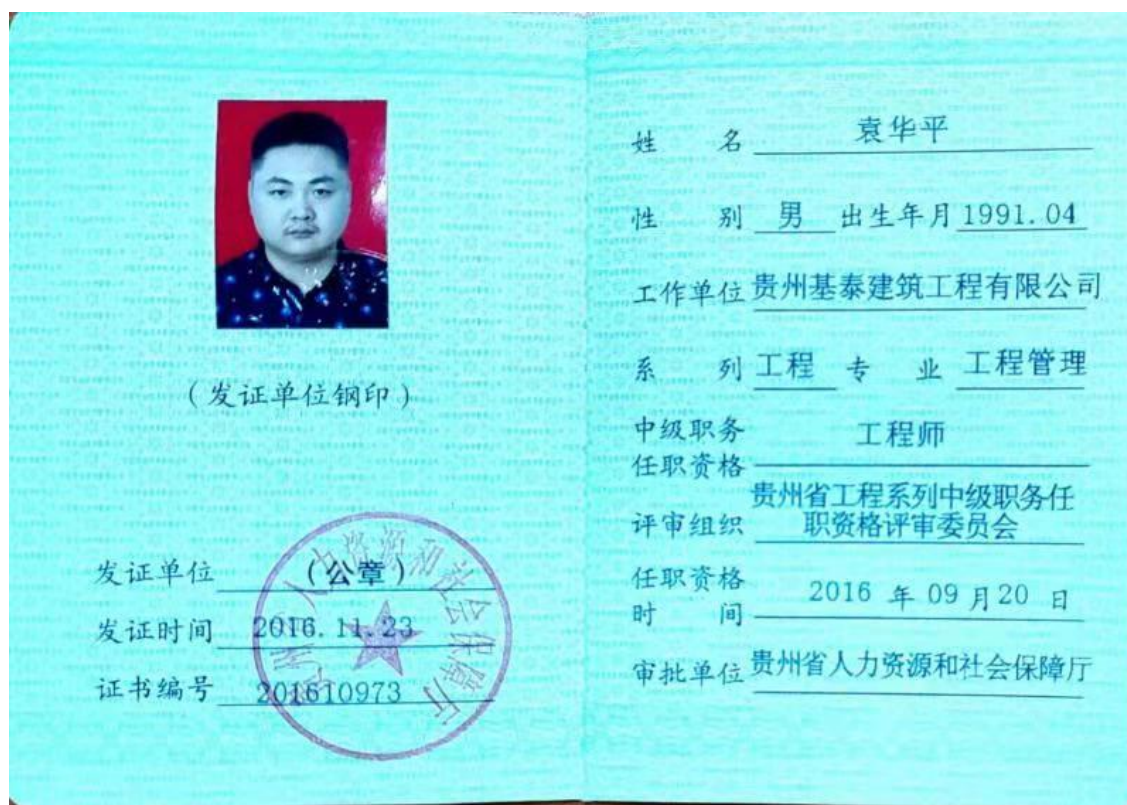 (发证单位钢印)
发证单位 (公章)
发证时间 2016.11.23
证书编号 201610973
贵州省人力资源和社会保障厅
姓 名 袁华平
性 别 男 出生年月 1991.04
工作单位 贵州基泰建筑工程有限公司
系 列 工程 专 业 工程管理
中级职务
任职资格 工程师
评审组织 贵州省工程系列中级职务任
职资格评审委员会
任职资格
时 间 2016 年 09 月 20 日
审批单位 贵州省人力资源和社会保障厅